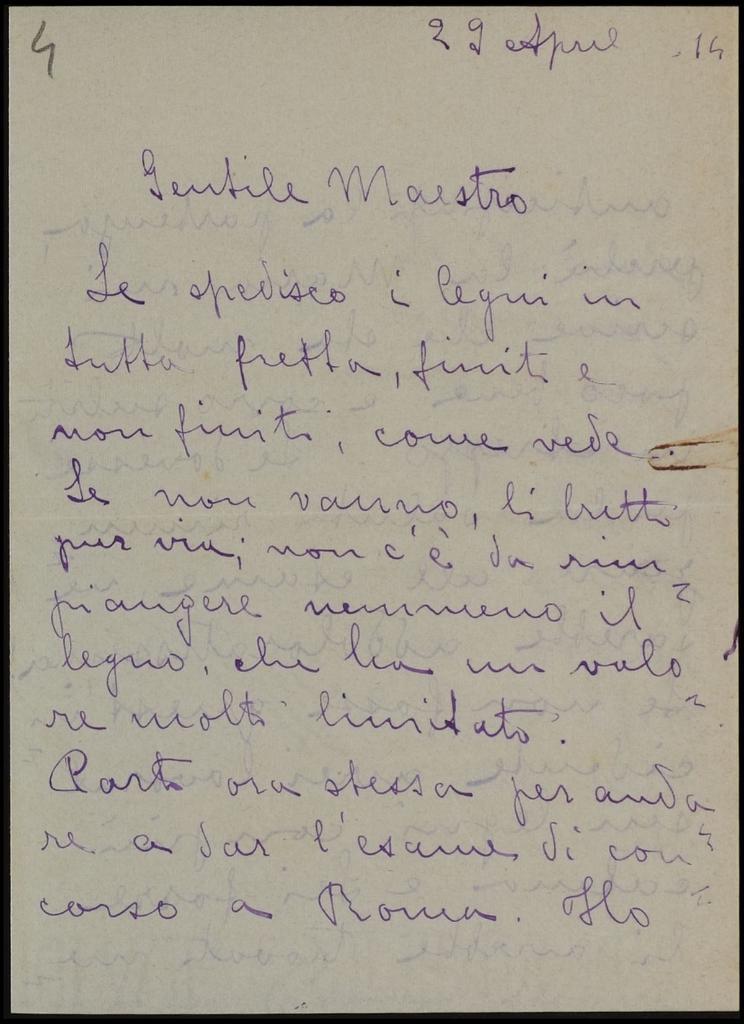 4
29 April .14
Gentile Maestro
Le spedisco i legni in
tutta fretta, finiti e
non finiti, come vede.
Se non vanno, li butti
pur via; non c'è da rim=
piangere nemmeno il
legno, che ha un valo=
re molto limitato.
Parto ora stessa per anda=
re a dar l'esame di con=
corso a Roma. Ho